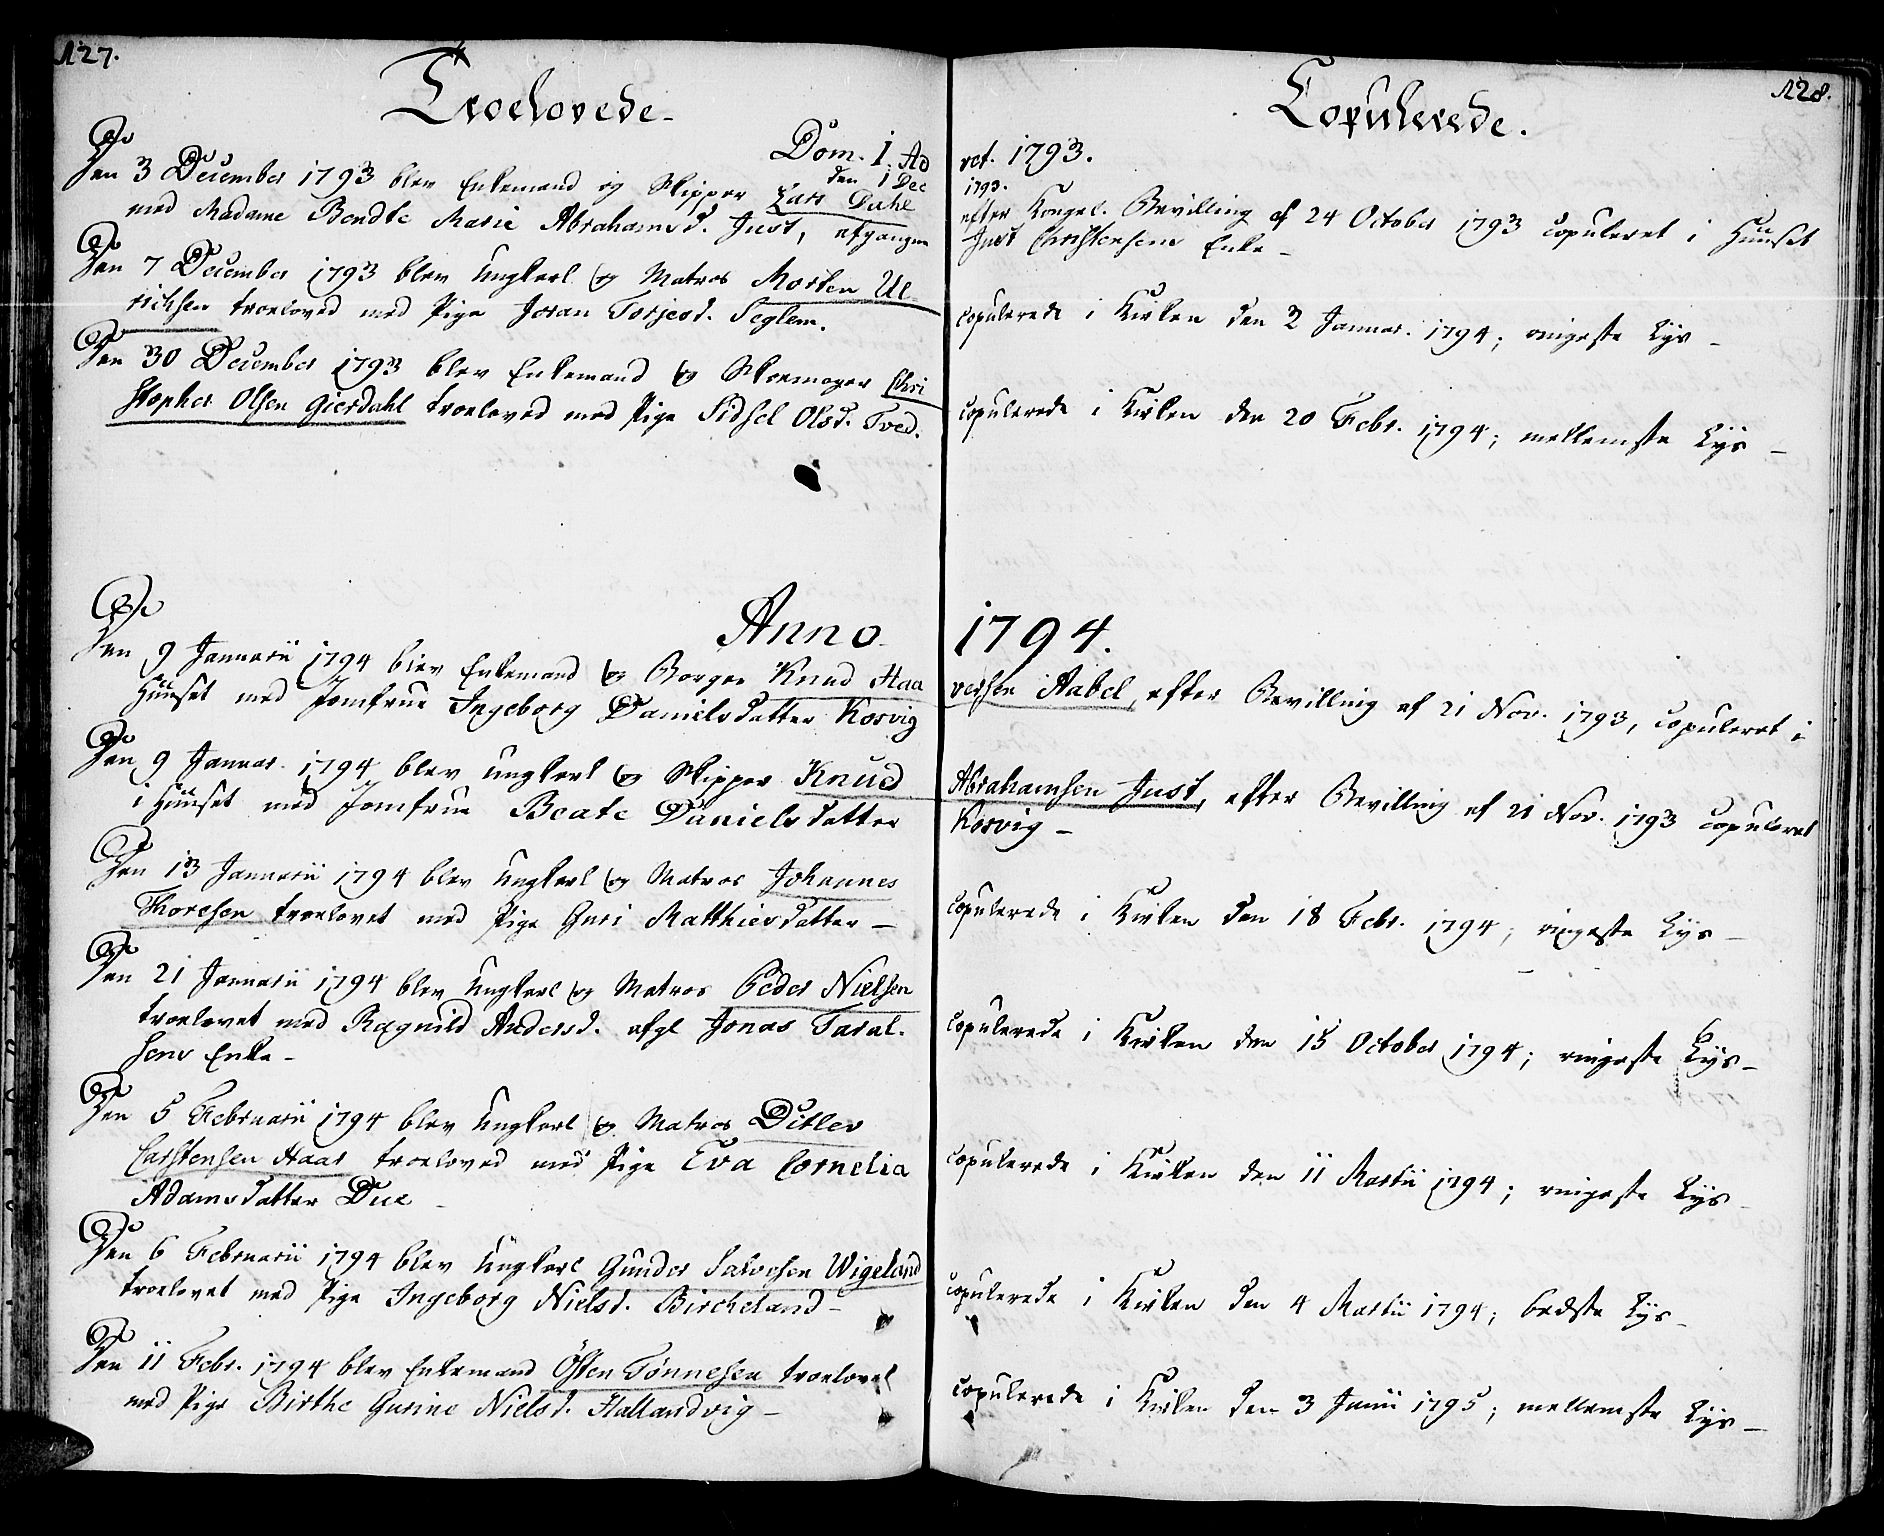 127.
Troelovede.
Dom. 1. Ad
den 1 Dec
Den 3 December 1793 blev Enkemand og Skipper Lars Dahl
med Madame Bendte Marie Abrahamsd. Just, afgangen
Den 7 December 1793 blev Ungkarl og Matros Morten Ul-
richsen troeloved med Pige Joran Torjesd. Seglem.
Den 30 December 1793 blev Enkemand og Skoemager Chri
stopher Olsen Gierdahl troeloved med Pige Sidsel Olsd. Tved.
Anno
Den 9 Januarii 1794 blev Enkemand og Borger Knud Haa
Huuset med Jomfrue Ingeborg Danielsdatter Korvig
Den 9 Januar. 1794 blev Ungkarl og Skipper Knud
i Huuset med Jomfrue Beate Danielsdatter
Den 13 Januarii 1794 blev Ungkarl og Matros Johannes
Thoresen troelovet med Pige Guri Matthiesdatter –
Den 21 Januarii 1794 blev Ungkarl og Matros Peder Nielsen
troelovet med Ragnild Andersd. afgl Jonas Taral-
sens Enke –
Den 5 Februarii 1794 blev Ungkarl og Matros Ditlev
Carstensen Haar troeloved med Pige Eva Cornelia
Adamsdatter Due –
Den 6 Februarii 1794 blev Ungkarl Gunder Salvesen Wigeland
troelovet med Pige Ingeborg Nielsd. Bircheland –
Den 11 Febr. 1794 blev Enkemand Østen Tønnesen troelovet
med Pige Birthe Gurine Nielsd. Hallandvig –
128.
Copulerede.
vet. 1793.
1793.
efter Kongel. Bevilling af 24 October 1793 copuleret i Huuset
Just Christensens Enke –
copulerede i Kirken den 2 Januar. 1794; ringeste Lys –
copulerede i Kirken den 20 Febr. 1794; mellemste Lys –
1794.
versen Aabel, efter Bevilling af 21 Nov. 1793, copuleret i
Abrahamsen Just, efter Bevilling af 21 Nov. 1793 copuleret
Korvig –
copulerede i Kirken den 18 Febr. 1794; ringeste Lys –
copulerede i Kirken den 15 October 1794; ringeste Lys –
copulerede i Kirken den 11 Martii 1794; ringeste Lys –
copulerede i Kirken den 4 Martii 1794; bedste Lys –
copulerede i Kirken den 3 Junii 1795; mellemste Lys –